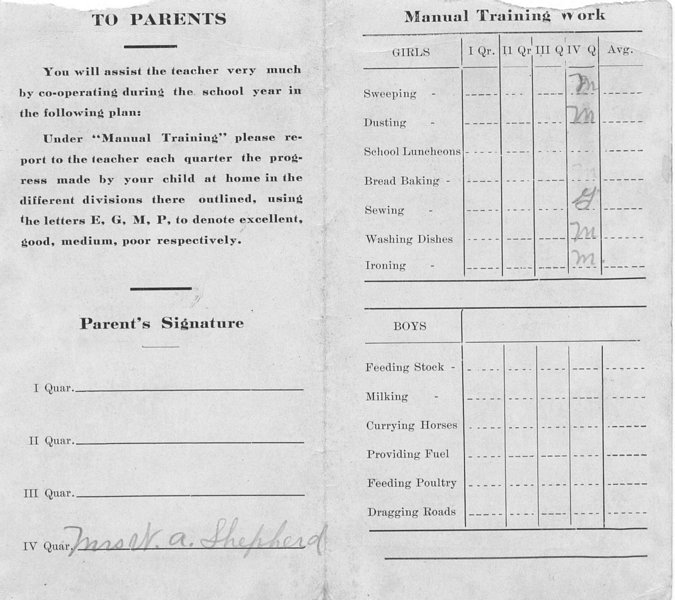 TO PARENTS
You will assist the teacher very much
by co-operating during the school year in
the following plan:
Under "Manual Training" please re-
port to the teacher each quarter the prog-
ress made by your child at home in the
different divisions there outlined, using
the letters E, G, M, P, to denote excellent,
good, medium, poor respectively.
Parent's Signature
I Quar.
II Quar.
III Quar.
IV Quar. Mrs W. A. Shepherd
Manual Training Work
GIRLS I Qr. II Qr III Q IV Q Avg.
Sweeping - M
Dusting - M
School Luncheons
Bread Baking -
Sewing - G
Washing Dishes M
Ironing - M.
BOYS
Feeding Stock -
Milking -
Currying Horses
Providing Fuel
Feeding Poultry
Dragging Roads